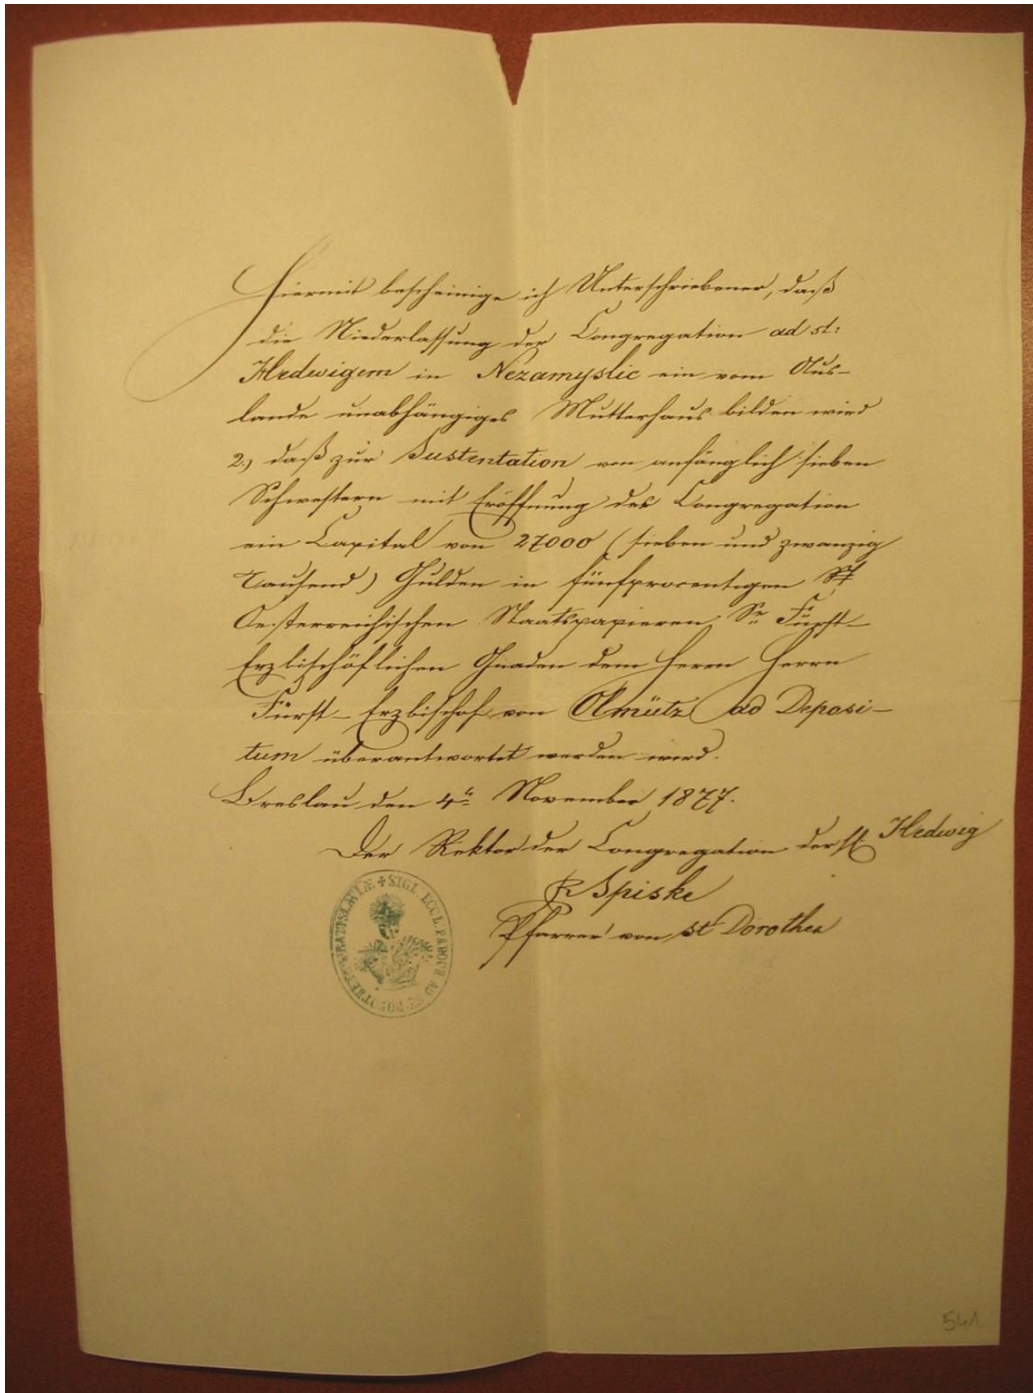 Hiermit bescheinige ich Unterschriebener, daß
die Niederlassung der Congregation ad st:
Hedwigem in Nezamyslic ein vom Aus-
lande unabhängiges Mutterhaus bilden wird
2.) daß zur Sustentation von anfänglich sieben
Schwestern mit Eröffnung der Congregation
ein Capital von 27000 (sieben und zwanzig
Tausend) Gulden in fünfprocentigen
Oesterreichischen Staatspapieren Sr Fürst-
Erzbischöflichen Gnaden dem Herrn Herrn
Fürst-Erzbischof von Olmütz ad Deposi-
tum überantwortet werden wird.
Breslau den 4t November 1877.
Der Rektor der Congregation der st Hedwig
R Spiske
Pfarrer von st Dorothea
SIGL. ECCL. PAROCH. AD
541